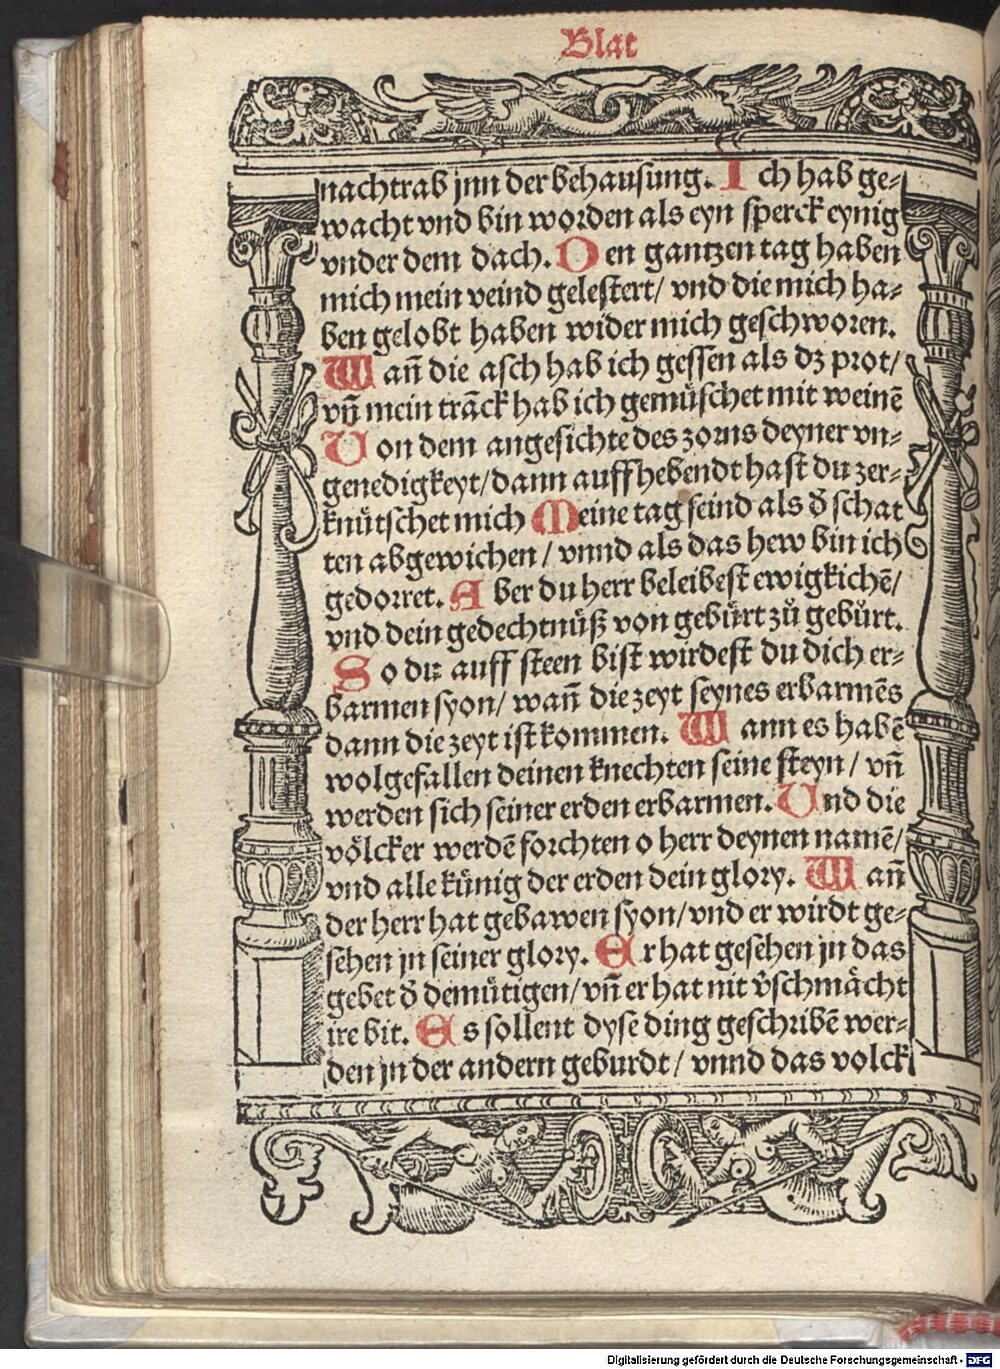 Blat
nachtrab jnn der behausung. Ich hab ge-
wacht vnd bin worden als eyn sperck eynig
vnder dem dach. Den gantzen tag haben
mich mein veind gelestert/ vnd die mich ha-
ben gelobt haben wider mich geschworen.
Wañ die asch hab ich gessen als dz prot/
vñ mein trãck hab ich gemüschet mit weinẽ
Von dem angesichte des zorns deyner vn-
genedigkeyt/ dann auffhebendt hast du zer-
knütschet mich Meine tag seind als d̕ schat
ten abgewichen/ vnnd als das hew bin ich
gedorret. Aber du herr beleibest ewigkichẽ/
vnd dein gedechtnüß von gebürt zů gebůrt.
So du auff steen bist wirdest du dich er-
barmen syon/ wañ die zeyt seynes erbarmẽs
dann die zeyt ist kommen. Wann es habẽ
wolgefallen deinen knechten seine steyn/ vñ
werden sich seiner erden erbarmen. Und die
völcker werdẽ forchten o herr deynen namẽ/
vnd alle künig der erden dein glory. Wañ
der herr hat gebawen syon/ vnd er wirdt ge-
sehen jn seiner glory. Er hat gesehen jn das
gebet d̕ demütigen/ vñ er hat nit v̕schmächt
ire bit. Es sollent dyse ding geschribẽ wer-
den jn der andern geburdt/ vnnd das volck
Digitalisierung gefördert durch die Deutsche Forschungsgemeinschaft - DFG